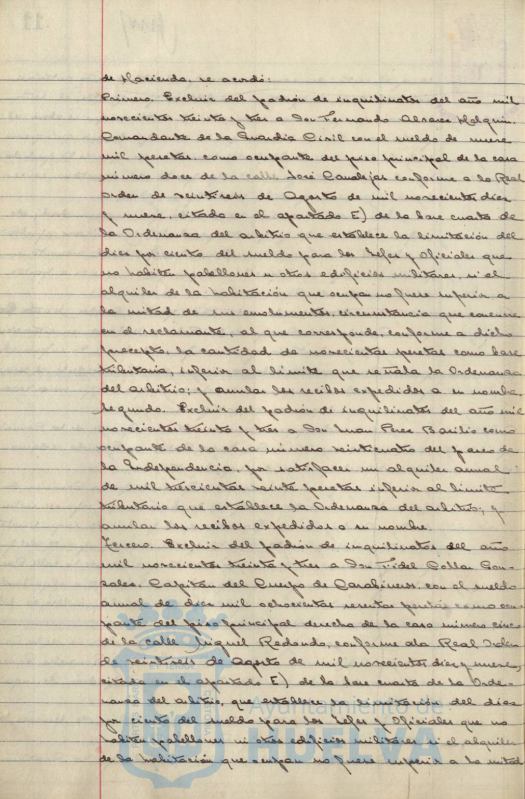 de Hacienda, se acordó:
Primero. Excluir del padrón de inquilinatos del año mil
novecientos treinta y tres a Don Fernando Alvarez Holguin,
Comandante de la Guardia Civil con el sueldo de nueve
mil pesetas, como ocupante del piso principal de la casa
número doce de la calle José Canalejas conforme a la Real
Orden de veintiseis de Agosto de mil novecientos diez
y nueve, citada en el apartado E) de la base cuarta de
la Ordenanza del arbitrio que establece la limitación del
diez por ciento del sueldo para los Jefes y Oficiales que
no habiten pabellones u otros edificios militares, si el
alquiler de la habitación que ocupan no fuere superior a
la mitad de sus emolumentos, circunstancia que concurre
en el reclamante, al que corresponde, conforme a dicho
precepto, la cantidad de novecientas pesetas como base
tributaria, inferior al límite que señala la Ordenanza
del arbitrio; y anular los recibos expedidos a su nombre.
Segundo. Excluir del padrón de inquilinatos del año mil
novecientos treinta y tres a Don Juan Perez Barilio como
ocupante de la casa número veinticuatro del paseo de
la Independencia, por satisfacer un alquiler anual
de mil trescientas veinte pesetas inferior al límite
tributario que establece la Ordenanza del arbitrio; y
anular los recibos expedidos a su nombre.
Tercero. Excluir del padrón de inquilinatos del año
mil novecientos treinta y tres a Don Fidel Gon-
zales, Capitán del Cuerpo de Carabineros, con el sueldo
anual de diez mil ochocientas sesenta pesetas como ocu-
pante del piso principal derecha de la casa número cinco
de la calle Miguel Redondo, conforme a la Real Orden
de veintiseis de Agosto de mil novecientos diez y nueve,
citada en el apartado E) de la base cuarta de la Orde-
nanza del arbitrio, que establece la limitación del diez
por ciento del sueldo para los Jefes y Oficiales que no
habiten pabellones ni otros edificios militares si el alquiler
de la habitación que ocupan no fuere superior a la mitad
Ayuntamiento de
HUELVA